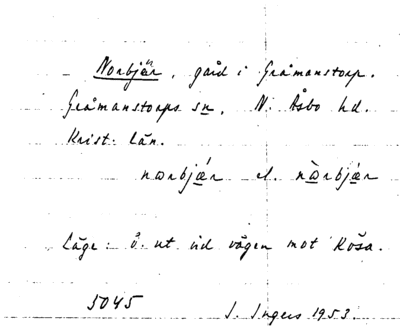 Norbjär, gård i Gråmanstorp.
Gråmanstorps sn, N. Åsbo hd.
Krist. län.
nωrbjǽr el. nὼrbjær
Läge: ö. ut vid vägen mot Kösa.
5045 I. Ingers 1953.